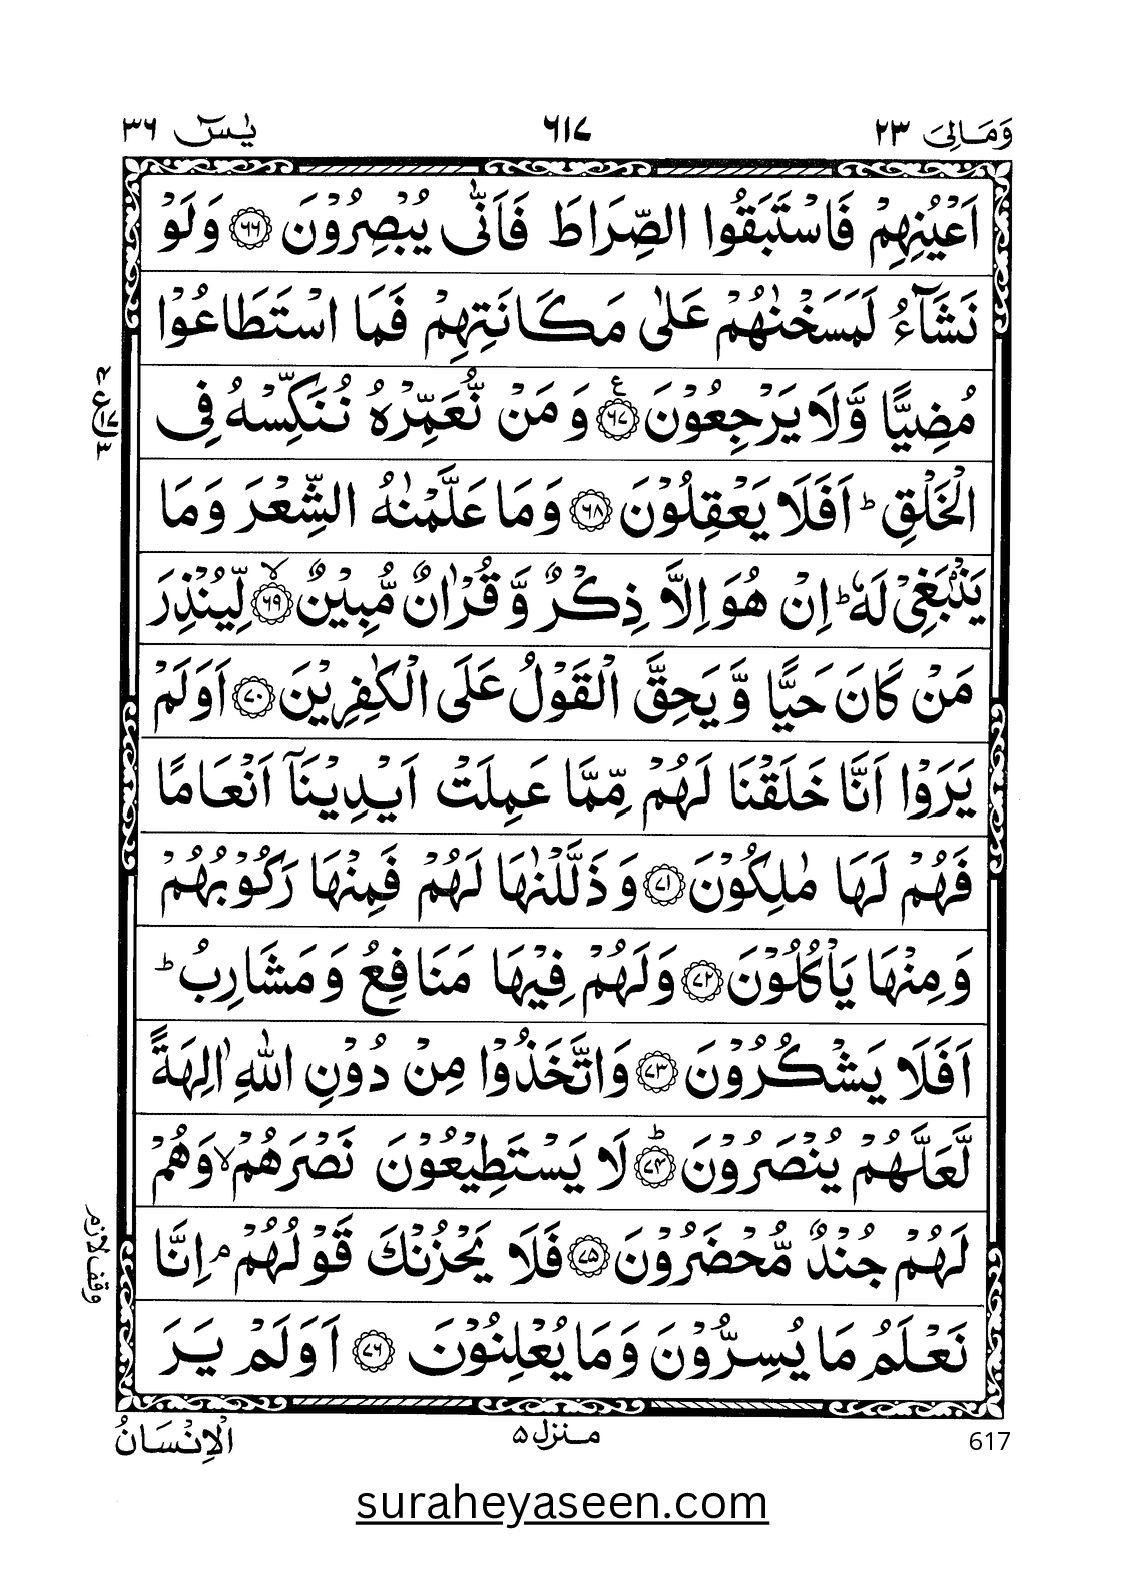 وَمَالِیَ ٢٣
٦١٧
یٰسٓ ٣٦
اَعْيُنِهِمْ فَاسْتَبَقُوا الصِّرَاطَ فَاَنّٰى يُبْصِرُوْنَ ﴿٦٦﴾ وَلَوْ
نَشَآءُ لَمَسَخْنٰهُمْ عَلٰى مَكَانَتِهِمْ فَمَا اسْتَطَاعُوْا
مُضِيًّا وَّلَا يَرْجِعُوْنَ ﴿٦٧﴾ۧ وَمَنْ نُّعَمِّرْهُ نُنَكِّسْهُ فِى
الْخَلْقِ ؕ اَفَلَا يَعْقِلُوْنَ ﴿٦٨﴾ وَمَا عَلَّمْنٰهُ الشِّعْرَ وَمَا
يَنْۢبَغِىْ لَهٗ ؕ اِنْ هُوَ اِلَّا ذِكْرٌ وَّ قُرْاٰنٌ مُّبِيْنٌ ﴿٦٩﴾ۙ لِّيُنْذِرَ
مَنْ كَانَ حَيًّا وَّ يَحِقَّ الْقَوْلُ عَلَى الْكٰفِرِيْنَ ﴿٧٠﴾ اَوَلَمْ
يَرَوْا اَنَّا خَلَقْنَا لَهُمْ مِّمَّا عَمِلَتْ اَيْدِيْنَاۤ اَنْعَامًا
فَهُمْ لَهَا مٰلِكُوْنَ ﴿٧١﴾ وَذَلَّلْنٰهَا لَهُمْ فَمِنْهَا رَكُوْبُهُمْ
وَمِنْهَا يَاْكُلُوْنَ ﴿٧٢﴾ وَلَهُمْ فِيْهَا مَنَافِعُ وَمَشَارِبُ ؕ
اَفَلَا يَشْكُرُوْنَ ﴿٧٣﴾ وَاتَّخَذُوْا مِنْ دُوْنِ اللّٰهِ اٰلِهَةً
لَّعَلَّهُمْ يُنْصَرُوْنَ ﴿٧٤﴾ؕ لَا يَسْتَطِيْعُوْنَ نَصْرَهُمْ ۙ وَهُمْ
لَهُمْ جُنْدٌ مُّحْضَرُوْنَ ﴿٧٥﴾ فَلَا يَحْزُنْكَ قَوْلُهُمْ ۘ اِنَّا
نَعْلَمُ مَا يُسِرُّوْنَ وَمَا يُعْلِنُوْنَ ﴿٧٦﴾ اَوَلَمْ يَرَ
٤
ع ١٧
٣
وقف لازم
617
منزل ۵
الْاِنْسَانُ
suraheyaseen.com